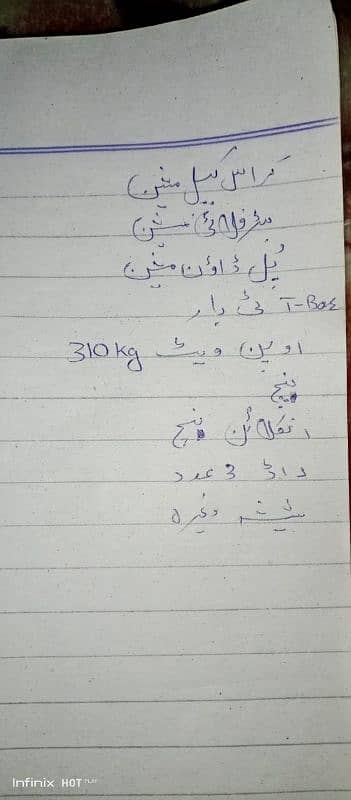 کراس کیبل مشین
بٹر فلائی مشین
پُل ڈاؤن مشین
T-Bar ٹی بار
اوپن ویٹ 310kg
بینچ
انکلائن بینچ
راڈ 3 عدد
شیشہ وغیرہ
Infinix HOT